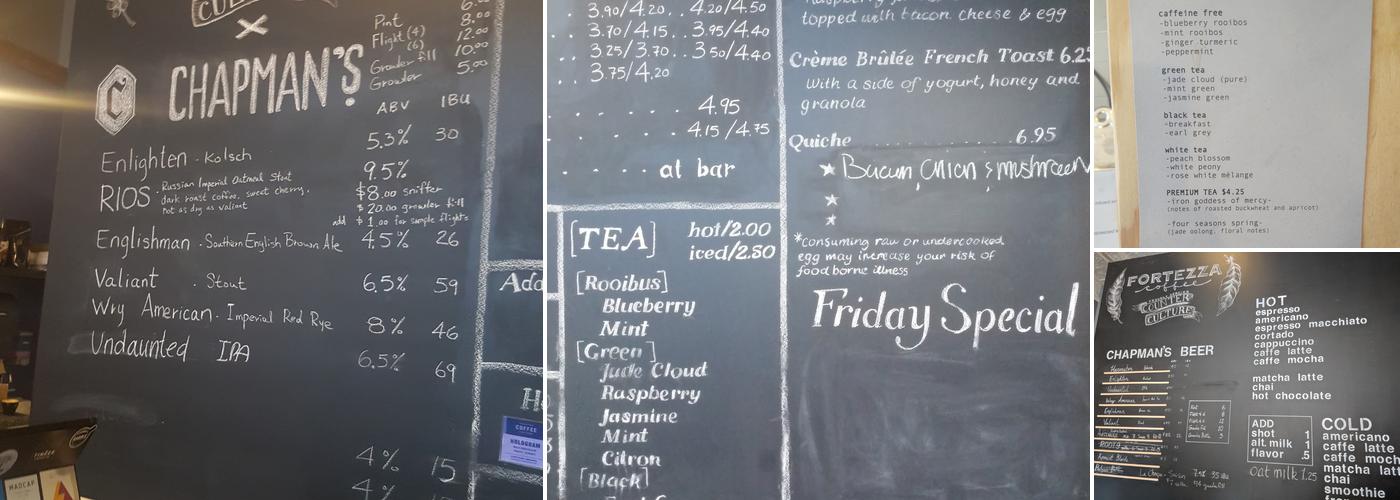 Pint
Flight (4) 8.00
(6) 12.00
Growler fill 10.00
Growler 5.00
CHAPMAN'S
C
ABV IBU
Enlighten - Kolsch 5.3% 30
RIOS - Russian Imperial Oatmeal Stout 9.5%
dark roast coffee, sweet cherry, $8.00 snifter
not as dry as valiant $20.00 growler fill
add $1.00 for sample flights
Englishman - Southern English Brown Ale 4.5% 26
Valiant - Stout 6.5% 59
Wry American - Imperial Red Rye 8% 46
Undaunted IPA 6.5% 69
4% 15
4%
COFFEE
HOLOGRAM
MADCAP
3.90/4.20 . . 4.20/4.50
3.70/4.15 . . 3.95/4.40
3.25/3.70 . . 3.50/4.40
3.75/4.20
4.95
4.15/4.75
at bar
[TEA] hot/2.00
iced/2.50
[Rooibus]
Blueberry
Mint
[Green]
Jade Cloud
Raspberry
Jasmine
Mint
Citron
[Black]
topped with bacon cheese & egg
Crème Brûlée French Toast 6.25
With a side of yogurt, honey and
granola
Quiche . . . . . . . . . . 6.95
Bacon, Onion & mushroom
*consuming raw or undercooked
egg may increase your risk of
food borne illness
Friday Special
caffeine free
-blueberry rooibos
-mint rooibos
-ginger turmeric
-peppermint
green tea
-jade cloud (pure)
-mint green
-jasmine green
black tea
-breakfast
-earl grey
white tea
-peach blossom
-white peony
-rose white mélange
PREMIUM TEA $4.25
-iron goddess of mercy-
(notes of roasted buckwheat and apricot)
-four seasons spring-
(jade oolong, floral notes)
FORTEZZA
coffee
COUNTER
CULTURE
CHAPMAN'S BEER
HOT
espresso
americano
espresso macchiato
cortado
cappuccino
caffe latte
caffe mocha
matcha latte
chai
hot chocolate
ADD
shot 1
alt milk 1
flavor .5
oat milk 1.25
COLD
americano
caffe latte
caffe moch
matcha latt
chai
smoothie